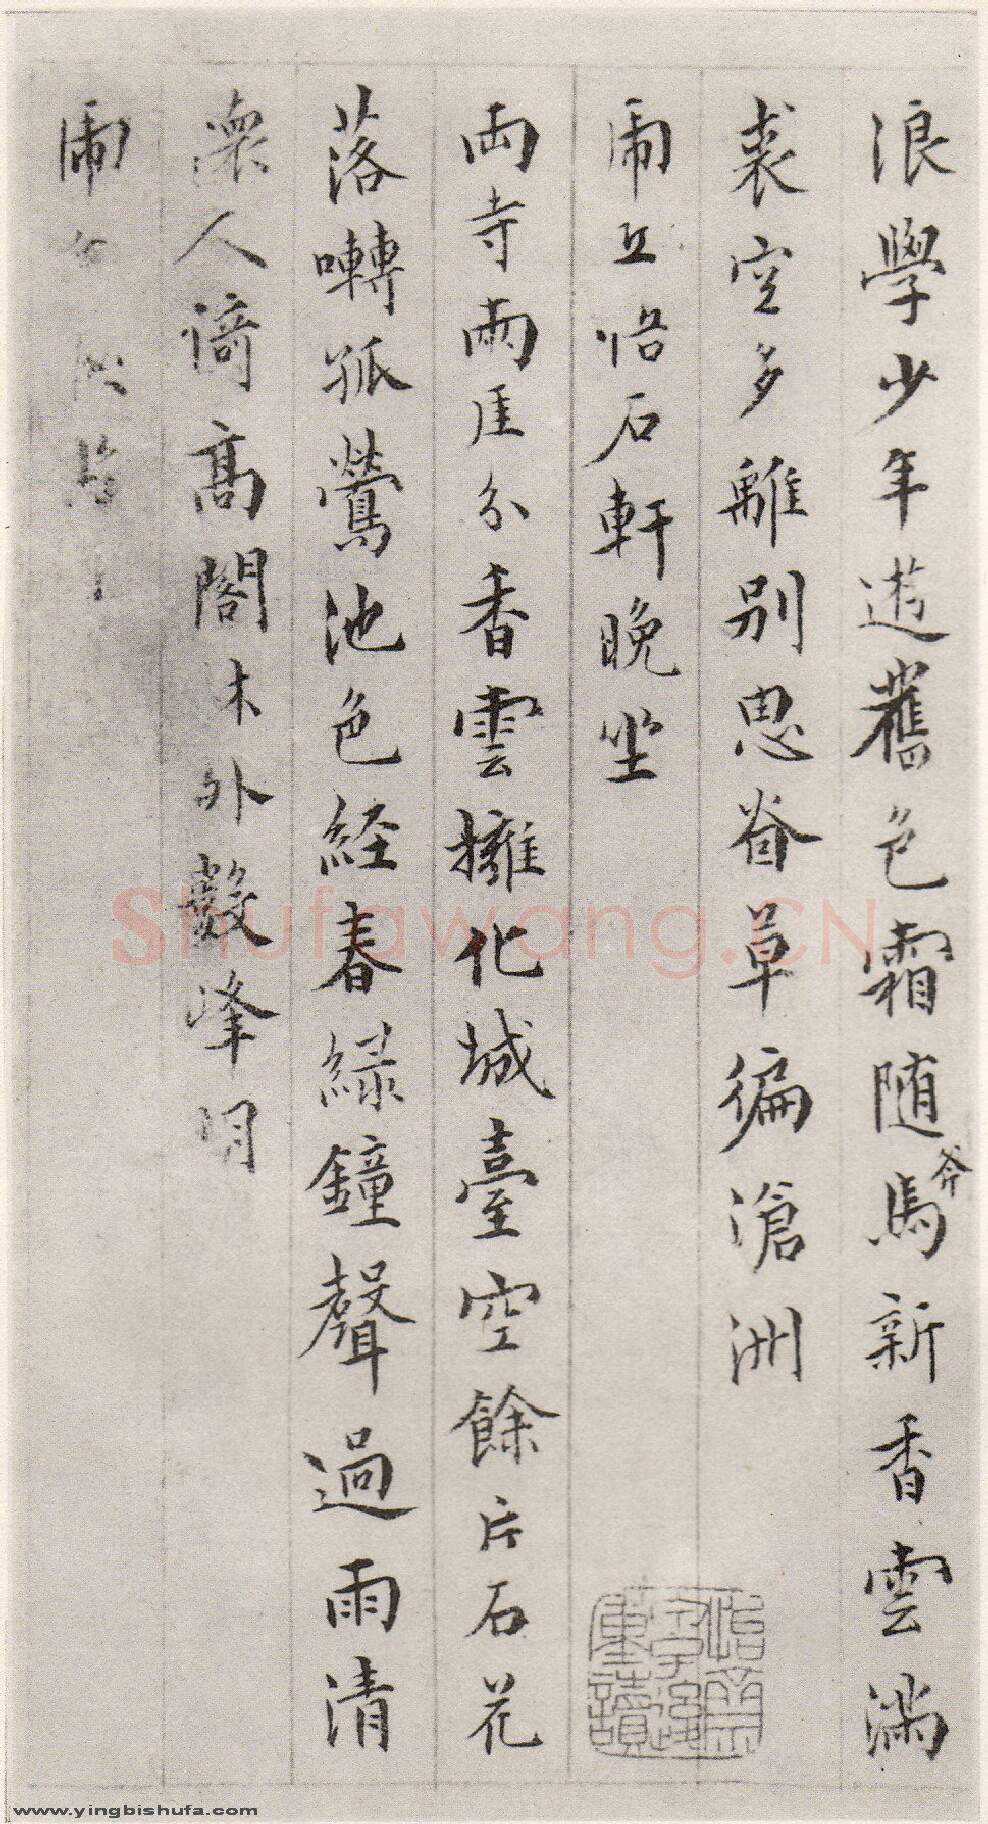 浪學少年遊舊色霜随馬新香雲满
斧
裘空多離别思者草徧滄洲
雨丘悟石軒晚坐
两寺兩厓分香雲擁化城臺空餘片石花
落囀孤鶯池色経春緑鐘聲過雨清
人倚髙閣木外數峰明
shufawang.CN
www.yingbishufa.com